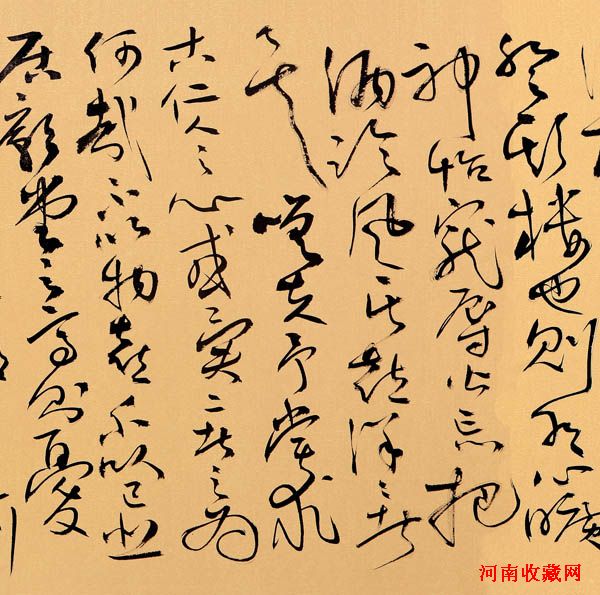 登斯樓也則有心曠
神怡寵辱偕忘把
酒臨風其喜洋洋者
矣嗟夫予嘗求
古仁人之心或異二者之為
何哉不以物喜不以己悲
居廟堂之高則憂
河南收藏网